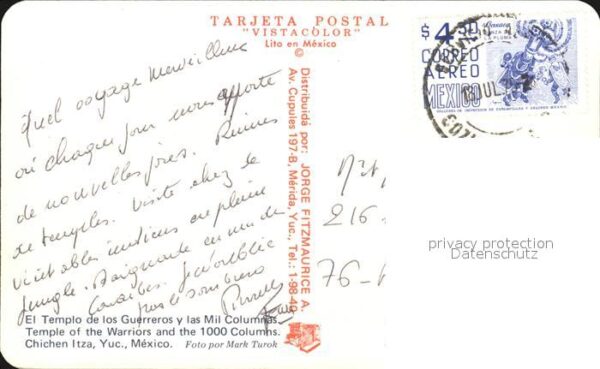 TARJETA POSTAL
"VISTACOLOR"
Lito en México
©
Quel voyage merveilleux
où chaque jour nous apporte
de nouvelles joies. Ruines
et temples. Visite chez le
indiens en pleine
jungle. Baignade en mer des
Caraïbes. Je n'oublie
pas le sombrero
El Templo de los Guerreros y las Mil Columnas.
Temple of the Warriors and the 1000 Columns.
Chichen Itza, Yuc., México. Foto por Mark Turok
Distribuida por: JORGE FITZMAURICE A.
Av. Cupules 197-B, Mérida, Yuc., Tel.: 1-98-40
$4.30
CORREO
AEREO
MEXICO
216-
76-
privacy protection
Datenschutz